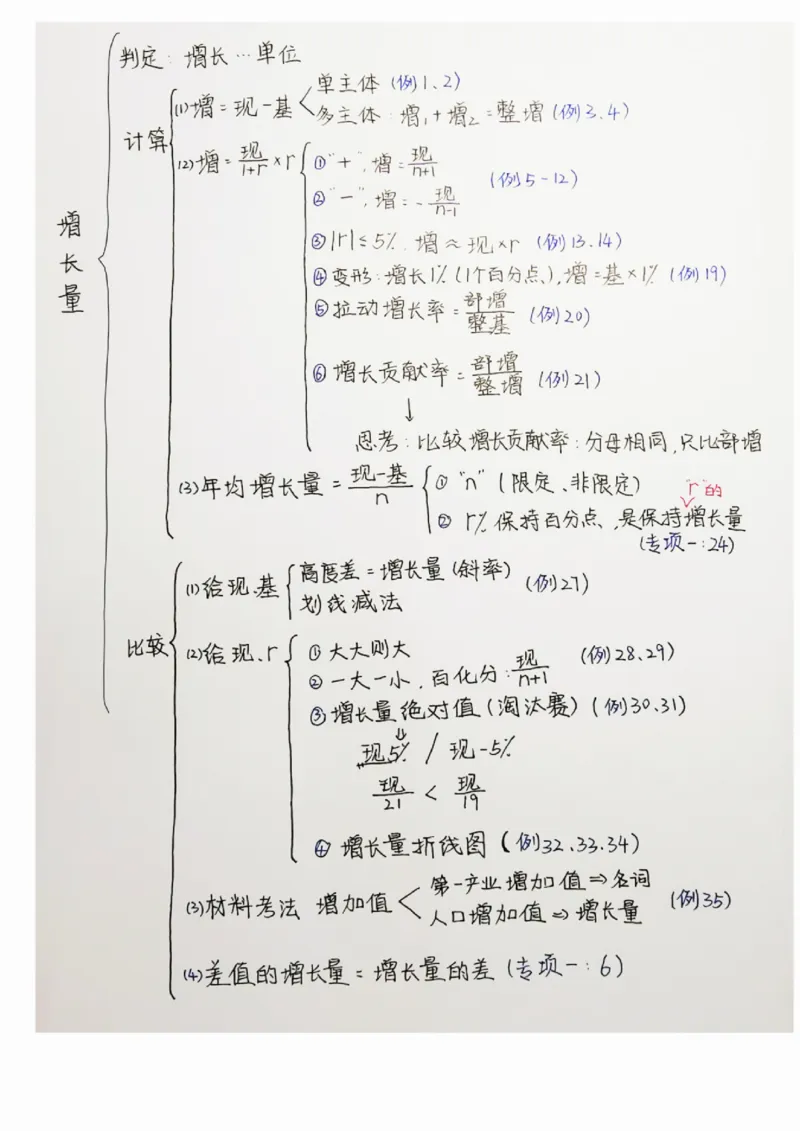 增长量
判定：增长…单位
计算
(1)增=现-基
单主体(例1、2)
多主体：增₁+增₂=整增(例3.4)
(2)增=现/(1+r)×r
①"+",增=现/(n+1)
②"-",增=-现/(n-1)
(例5-12)
③|r|≤5%.增≈现×r (例13.14)
④变形:增长1%(1个百分点),增=基×1% (例19)
⑤拉动增长率=部增/整基 (例20)
⑥增长贡献率=部增/整增 (例21)
↓
思考:比较增长贡献率:分母相同,只比部增
(3)年均增长量=(现-基)/n
①"n"(限定、非限定)
"r"的
②r%保持百分点、是保持增长量
(专项一:24)
比较
(1)给现、基
高度差=增长量(斜率)
划线减法
(例27)
(2)给现、r
①大大则大
(例28、29)
②一大一小,百化分:现/(n+1)
③增长量绝对值(淘汰赛)(例30、31)
⇓
现5% / 现-5%
现/21 < 现/19
④增长量折线图(例32、33.34)
(3)材料考法 增加值
第一产业增加值⇒名词
人口增加值⇒增长量
(例35)
(4)差值的增长量=增长量的差(专项一:6)